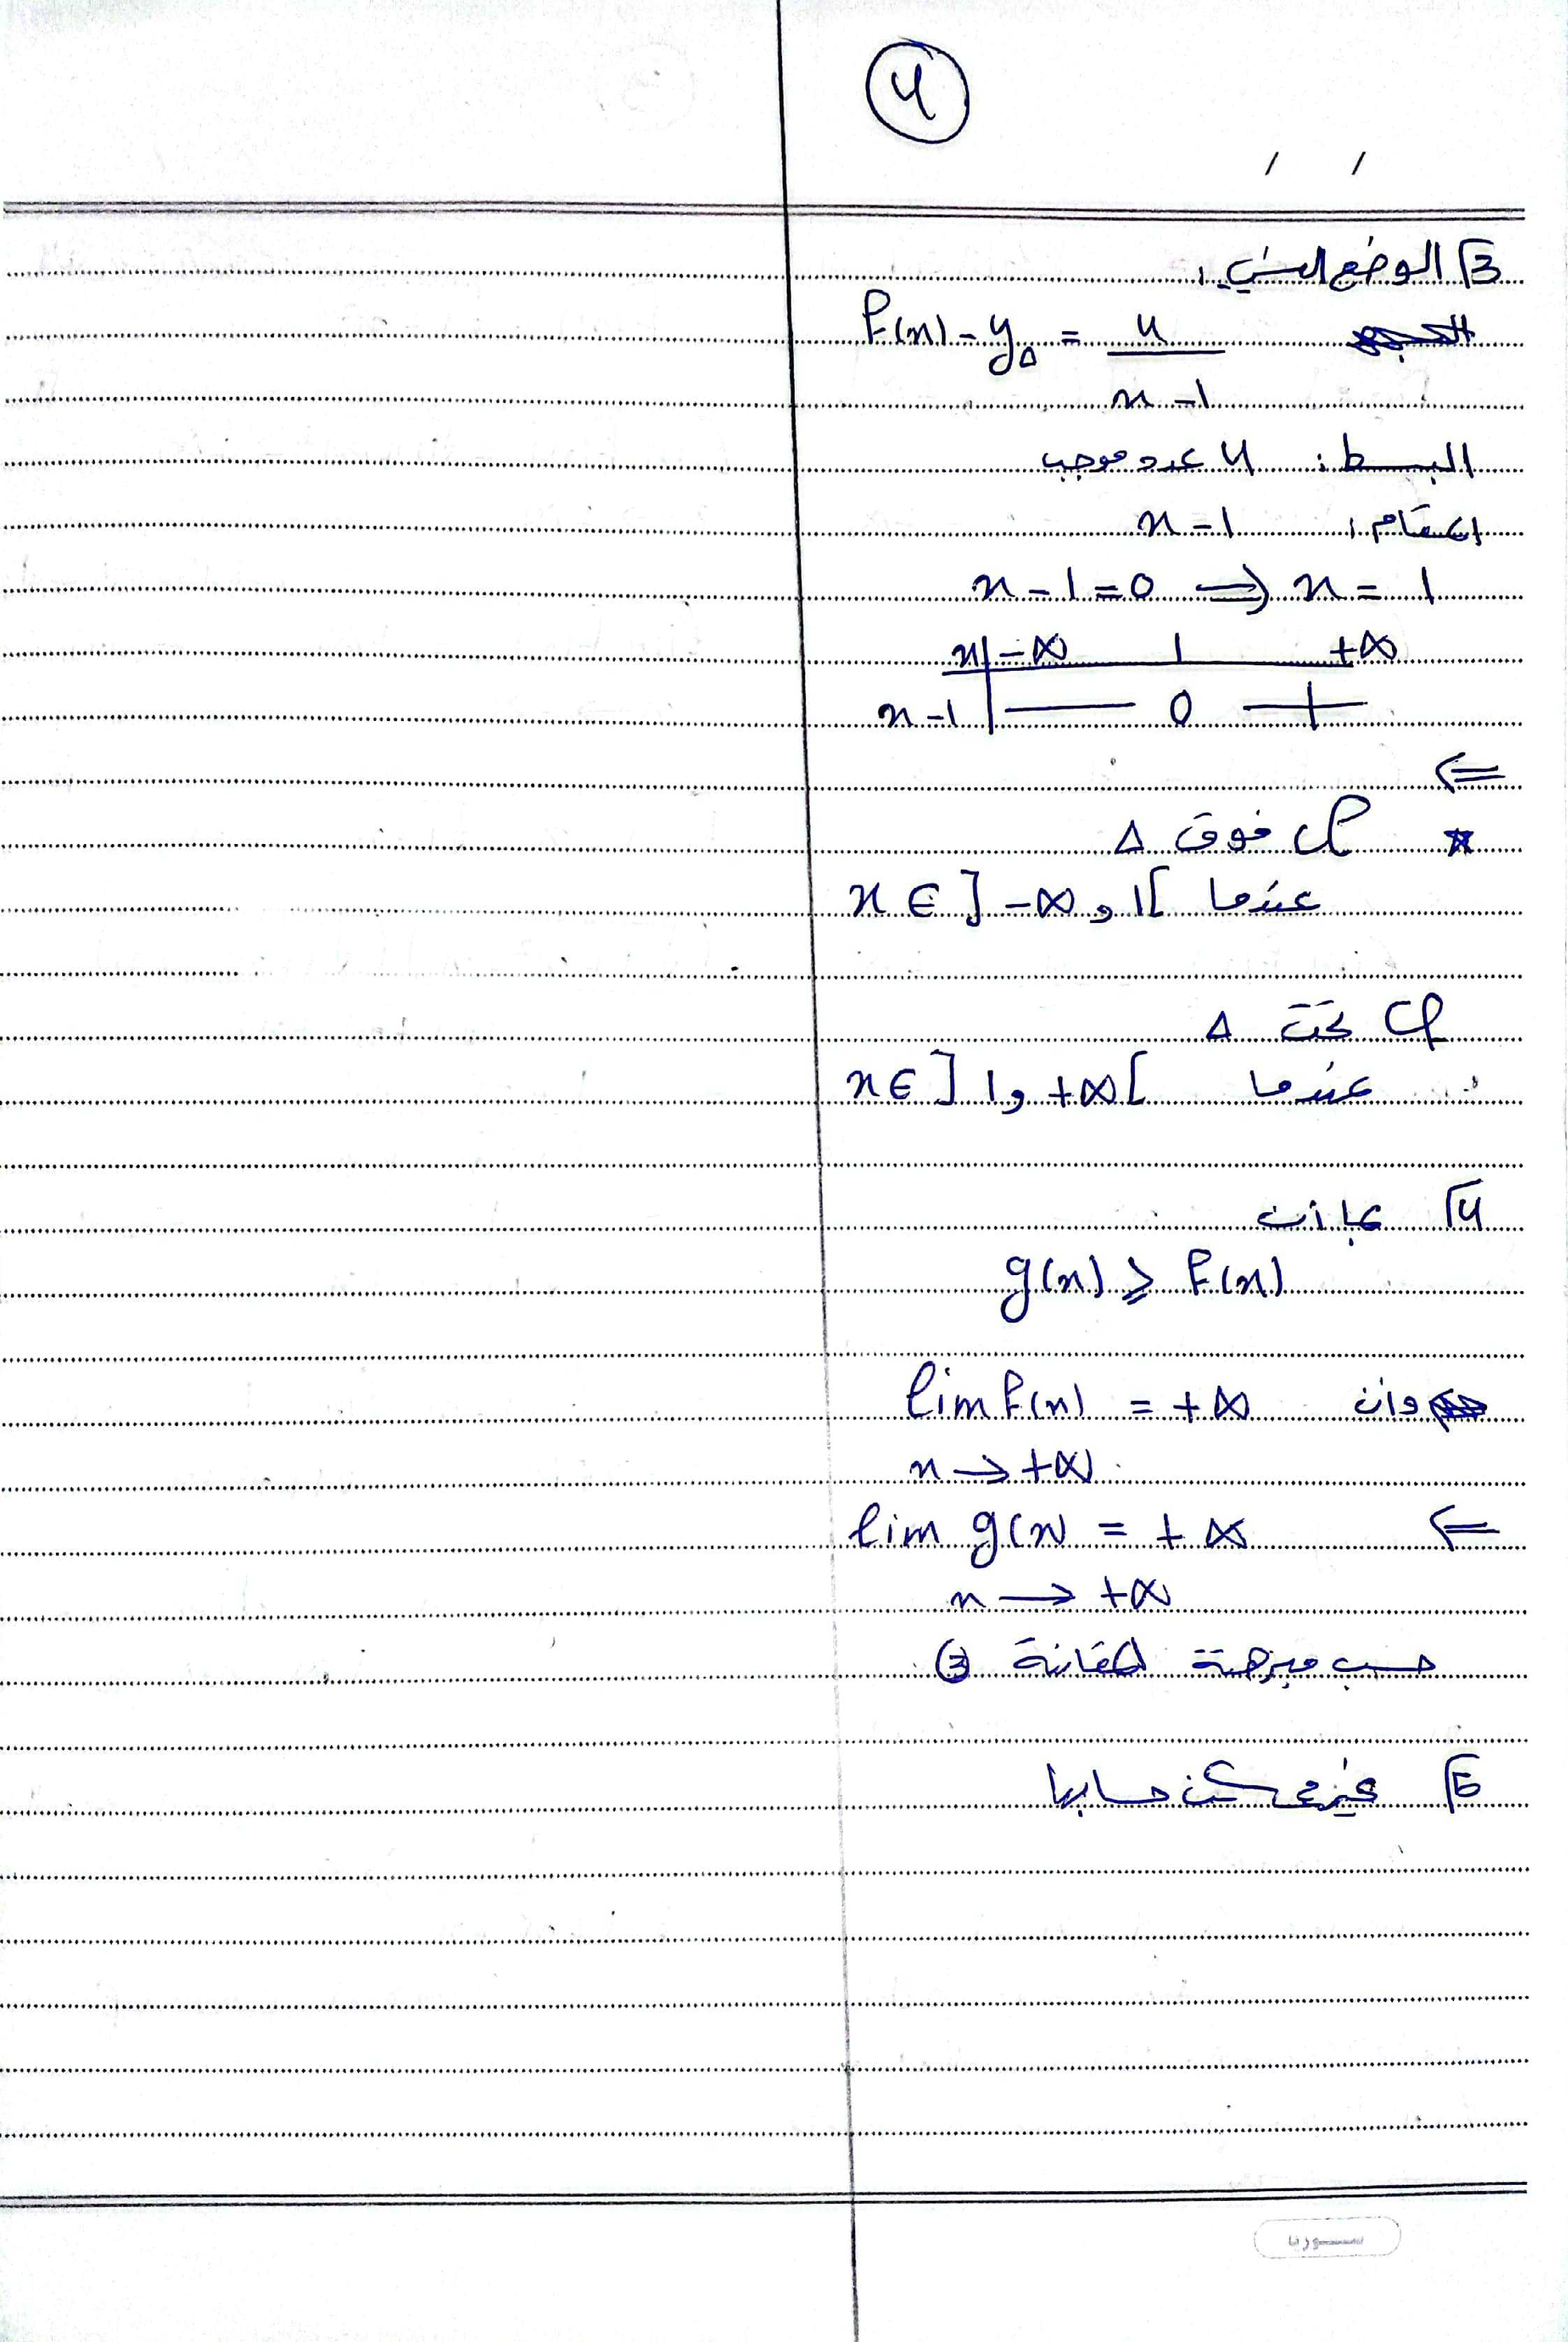 4
/ /
3 الوضع النسبي:
f(x) - y_Δ = 4 / (x-1)
البسط: 4 عدد موجب
المقام: x-1
x-1=0 ⇒ x=1
x | -∞ 1 +∞
x-1 | — 0 +
⇐
* Cf فوق Δ
عندما x ∈ ]-∞ , 1[
Cf تحت Δ
عندما x ∈ ]1 , +∞[
4 بما أن
g(x) ≥ f(x)
وأن lim f(x) = +∞
x → +∞
⇐ lim g(x) = +∞
x → +∞
حسب مبرهنة المقارنة 3
5 غير ممكن حسابها
سورنا